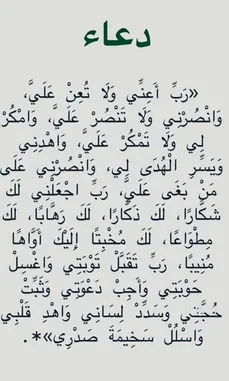 دعاء
«رَبِّ أَعِنِّي وَلَا تُعِنْ عَلَيَّ،
وَانْصُرْنِي وَلَا تَنْصُرْ عَلَيَّ، وَامْكُرْ
لِي وَلَا تَمْكُرْ عَلَيَّ، وَاهْدِنِي
وَيَسِّرِ الْهُدَى لِي، وَانْصُرْنِي عَلَى
مَنْ بَغَى عَلَيَّ، رَبِّ اجْعَلْنِي لَكَ
شَكَّارًا، لَكَ ذَكَّارًا، لَكَ رَهَّابًا، لَكَ
مِطْوَاعًا، لَكَ مُخْبِتًا إِلَيْكَ أَوَّاهًا
مُنِيبًا، رَبِّ تَقَبَّلْ تَوْبَتِي وَاغْسِلْ
حَوْبَتِي وَأَجِبْ دَعْوَتِي وَثَبِّتْ
حُجَّتِي وَسَدِّدْ لِسَانِي وَاهْدِ قَلْبِي
وَاسْلُلْ سَخِيمَةَ صَدْرِي»*.